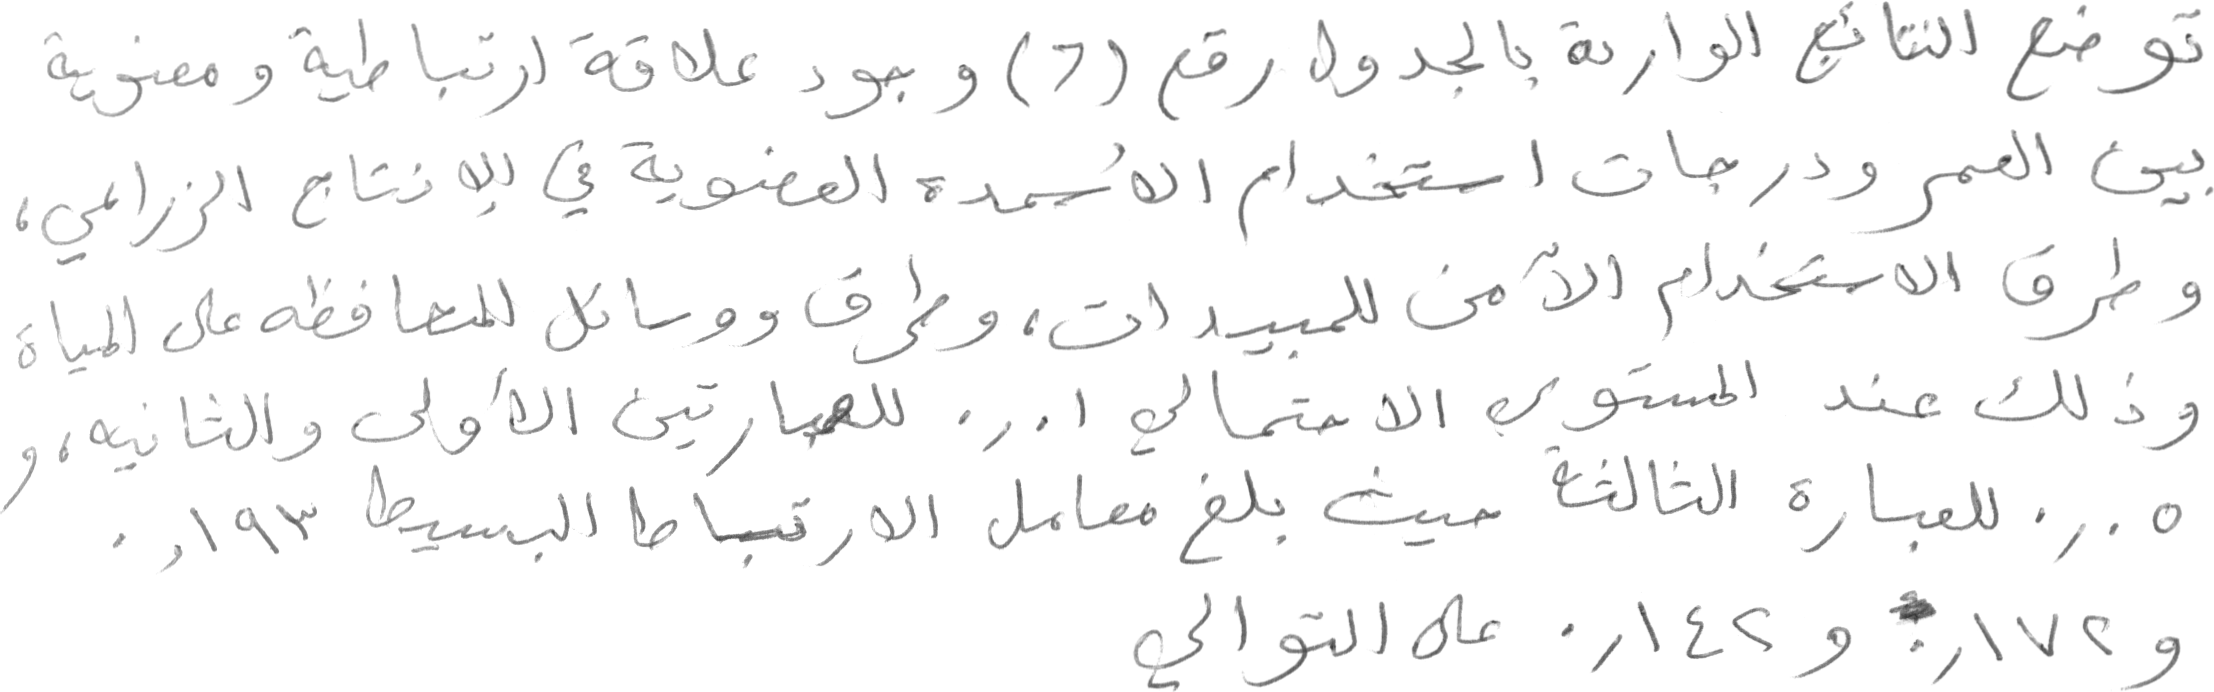 توضح النتائج الواردة بالجدول رقم (7) وجود علاقة ارتباطية ومعنوية
بين العمر ودرجات استخدام الأسمدة العضوية في الإنتاج الزراعي،
وطرق الاستخدام الآمن للمبيدات، وطرق ووسائل للمحافظه على المياة
وذلك عند المستوي الاحتمالي ٠٫٠١ للعبارتين الأولى والثانيه، و
٠٫٠٥ للعبارة الثالثة حيث بلغ معامل الارتباط البسيط ٠٫١٩٣
و ٠٫١٧٢ و ٠٫١٤٢ على التوالي